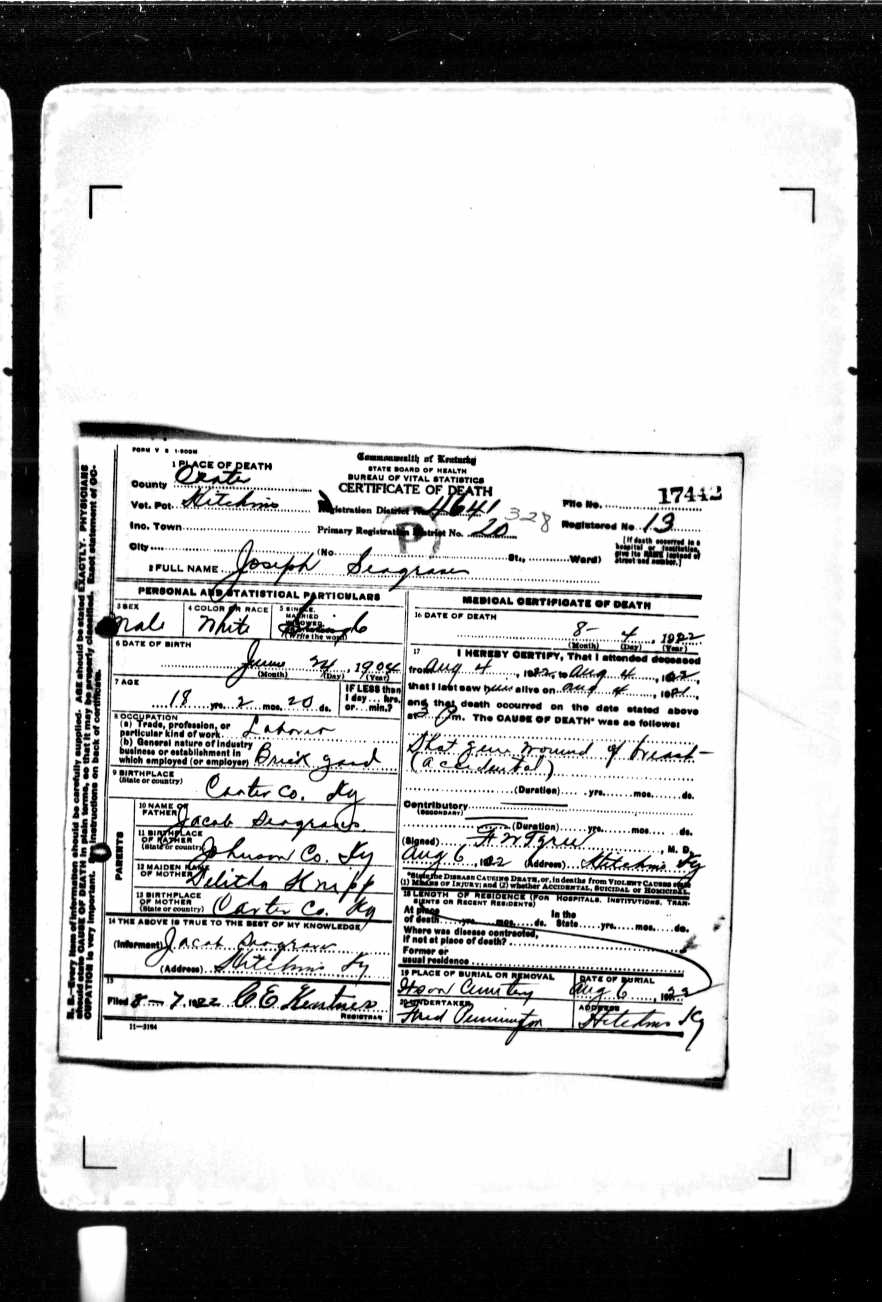 FORM V S 1-500M
Commonwealth of Kentucky
STATE BOARD OF HEALTH
BUREAU OF VITAL STATISTICS
CERTIFICATE OF DEATH
1 PLACE OF DEATH
County Carter
Vot. Pct. Hitchins
Inc. Town
City
Registration District No. 4641
328
Primary Registration District No. 20
(No. St., Ward)
File No. 17442
Registered No. 13
[If death occurred in a hospital or institution, give its NAME instead of street and number.]
2 FULL NAME Joseph Seagraves
PERSONAL AND STATISTICAL PARTICULARS
3 SEX Male
4 COLOR OR RACE White
5 SINGLE, MARRIED (Write the word) Single
6 DATE OF BIRTH June 24, 1904
(Month) (Day) (Year)
7 AGE 18 yrs. 2 mos. 20 ds.
IF LESS than 1 day... hrs. or... min.?
8 OCCUPATION
(a) Trade, profession, or particular kind of work Laborer
(b) General nature of industry business or establishment in which employed (or employer) Brick yard
9 BIRTHPLACE (State or country) Carter Co. Ky
PARENTS
10 NAME OF FATHER Jacob Seagraves
11 BIRTHPLACE OF FATHER (State or country) Johnson Co. Ky
12 MAIDEN NAME OF MOTHER Delitha Knipp
13 BIRTHPLACE OF MOTHER (State or country) Carter Co. Ky
14 THE ABOVE IS TRUE TO THE BEST OF MY KNOWLEDGE
(Informant) Jacob Seagraves
(Address) Hitchins Ky
15
Filed 8-7, 1922 C E
REGISTRAR
11-3184
MEDICAL CERTIFICATE OF DEATH
16 DATE OF DEATH
8- 4, 1922
(Month) (Day) (Year)
17 I HEREBY CERTIFY, That I attended deceased
from Aug 4, 1922, to Aug 4, 1922,
that I last saw him alive on Aug 4, 19
and that death occurred on the date stated above
at 3 P m. The CAUSE OF DEATH* was as follows:
Shot gun wound of breast-
(accidental)
(Duration) yrs. mos. ds.
Contributory
(SECONDARY)
(Duration) yrs. mos. ds.
(Signed) , M. D.
Aug 6, 1922 (Address) Hitchins Ky
*State the DISEASE CAUSING DEATH, or, in deaths from VIOLENT CAUSES state (1) MEANS OF INJURY; and (2) whether ACCIDENTAL, SUICIDAL or HOMICIDAL.
18 LENGTH OF RESIDENCE (FOR HOSPITALS, INSTITUTIONS, TRANSIENTS OR RECENT RESIDENTS)
At place of death yrs. mos. ds. In the State yrs. mos. ds.
Where was disease contracted, if not at place of death?
Former or usual residence
19 PLACE OF BURIAL OR REMOVAL
Cemetery
DATE OF BURIAL
Aug 6, 1922
20 UNDERTAKER
Fred Pennington
ADDRESS
Hitchins Ky
N. B.—Every item of information should be carefully supplied. AGE should be stated EXACTLY. PHYSICIANS should state CAUSE OF DEATH in plain terms, so that it may be properly classified. Exact statement of OCCUPATION is very important. See instructions on back of certificate.